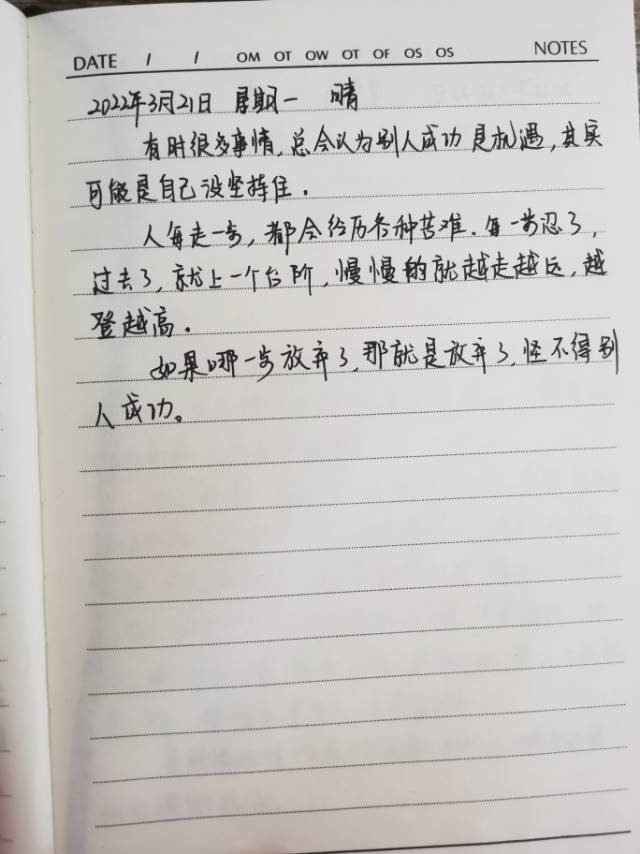 DATE / / OM OT OW OT OF OS OS NOTES
2022年3月21日 星期一 晴
有时很多事情,总会认为别人成功是机遇,其实
可能是自己没坚持住.
人每走一步,都会经历各种苦难.每一步忍了,
过去了,就上一个台阶,慢慢的就越走越远,越
登越高。
如果哪一步放弃了,那就是放弃了,怪不得别
人成功。